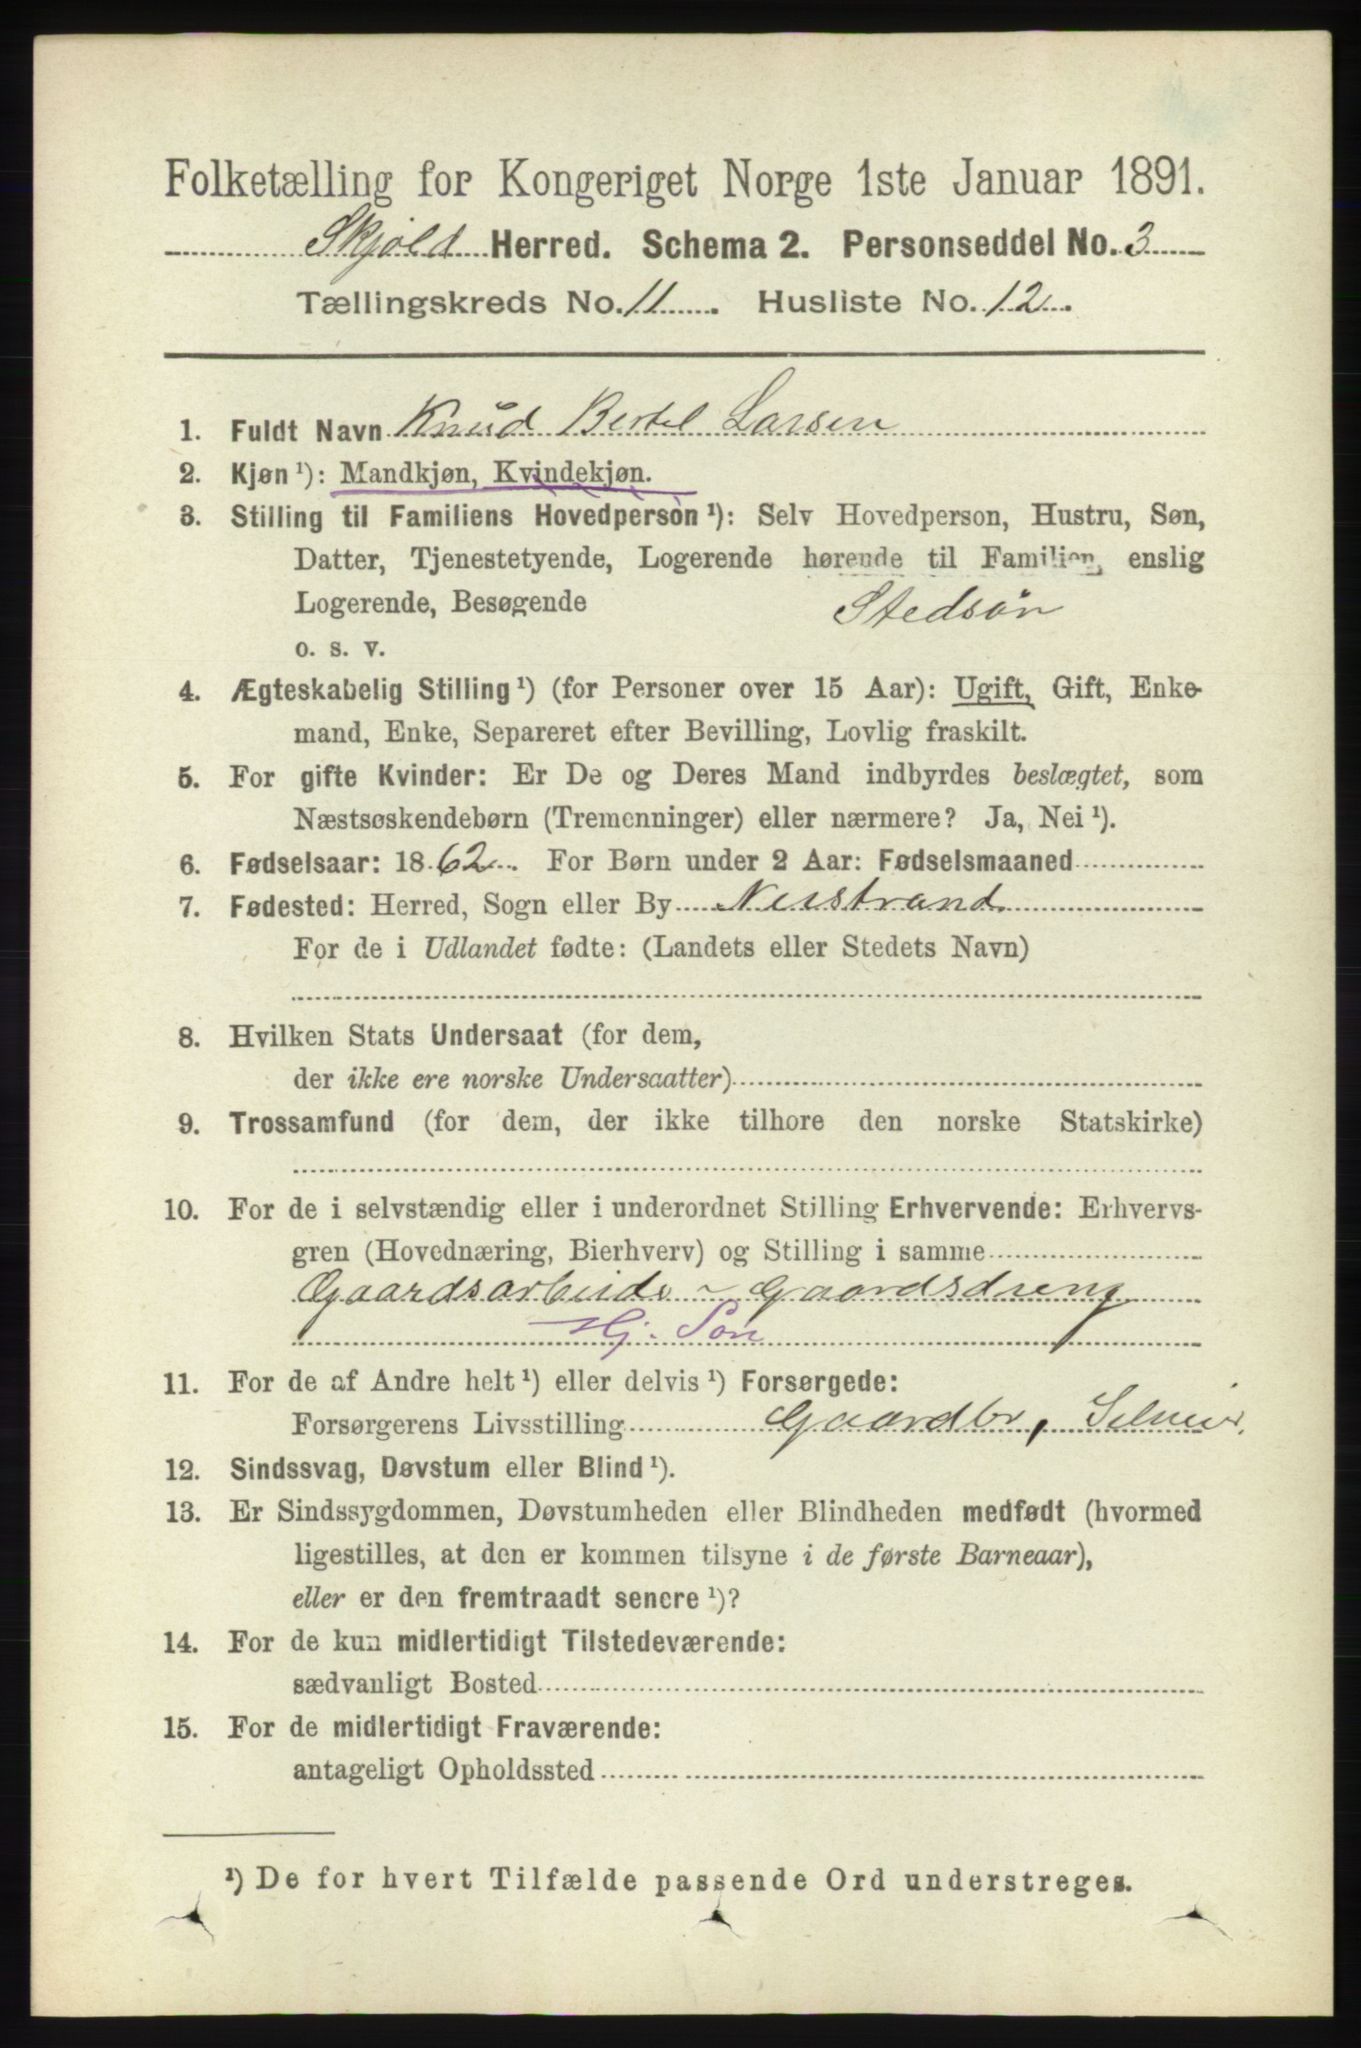 Folketælling for Kongeriget Norge 1ste Januar 1891.
Skjold Herred. Schema 2. Personseddel No. 3
Tællingskreds No. 11. Husliste No. 12.
1. Fuldt Navn Knud Bertel Larsen
2. Kjøn ¹): Mandkjøn, Kvindekjøn.
3. Stilling til Familiens Hovedperson ¹): Selv Hovedperson, Hustru, Søn,
Datter, Tjenestetyende, Logerende hørende til Familien, enslig
Logerende, Besøgende Stedsøn
o. s. v.
4. Ægteskabelig Stilling ¹) (for Personer over 15 Aar): Ugift, Gift, Enke-
mand, Enke, Separeret efter Bevilling, Lovlig fraskilt.
5. For gifte Kvinder: Er De og Deres Mand indbyrdes beslægtet, som
Næstsøskendebørn (Tremenninger) eller nærmere? Ja, Nei ¹).
6. Fødselsaar: 1862. For Børn under 2 Aar: Fødselsmaaned
7. Fødested: Herred, Sogn eller By Nerstrand
For de i Udlandet fødte: (Landets eller Stedets Navn)
8. Hvilken Stats Undersaat (for dem,
der ikke ere norske Undersaatter)
9. Trossamfund (for dem, der ikke tilhore den norske Statskirke)
10. For de i selvstændig eller i underordnet Stilling Erhvervende: Erhvervs-
gren (Hovednæring, Bierhverv) og Stilling i samme
Gaardsarbeide - Gaardsdreng
Hj. Søn
11. For de af Andre helt ¹) eller delvis ¹) Forsørgede:
Forsørgerens Livsstilling Gaardbr, Selveier.
12. Sindssvag, Døvstum eller Blind ¹).
13. Er Sindssygdommen, Døvstumheden eller Blindheden medfødt (hvormed
ligestilles, at den er kommen tilsyne i de første Barneaar),
eller er den fremtraadt senere ¹)?
14. For de kun midlertidigt Tilstedeværende:
sædvanligt Bosted
15. For de midlertidigt Fraværende:
antageligt Opholdssted
¹) De for hvert Tilfælde passende Ord understreges.